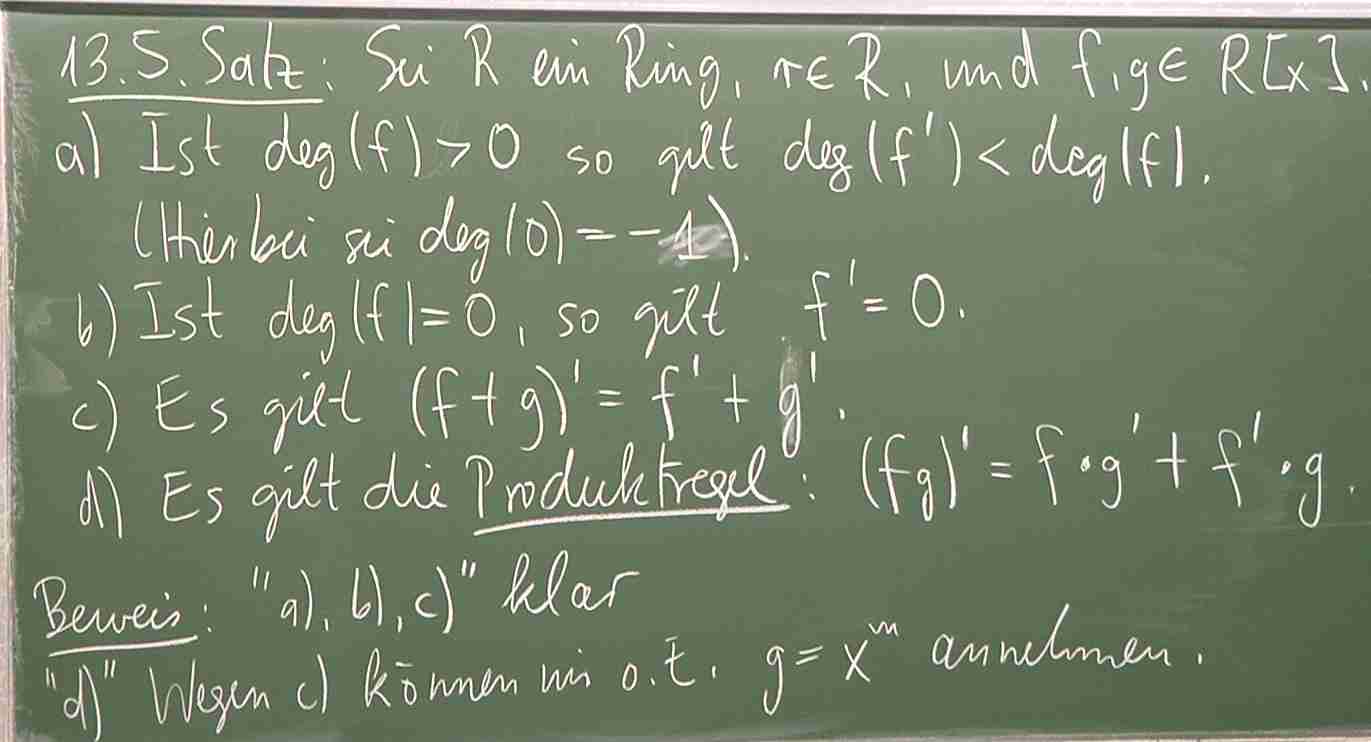 13.5. Satz: Sei R ein Ring, r∈R, und f,g∈ R[x].
a) Ist deg(f)>0 so gilt deg(f')<deg(f).
(Hierbei sei deg(0)=-1).
b) Ist deg(f)=0, so gilt f'=0.
c) Es gilt (f+g)'=f'+g'.
d) Es gilt die Produktregel: (fg)'=f•g'+f'•g.
Beweis: "a), b), c)" klar
"d)" Wegen c) können wir o.E. g=x^m annehmen.